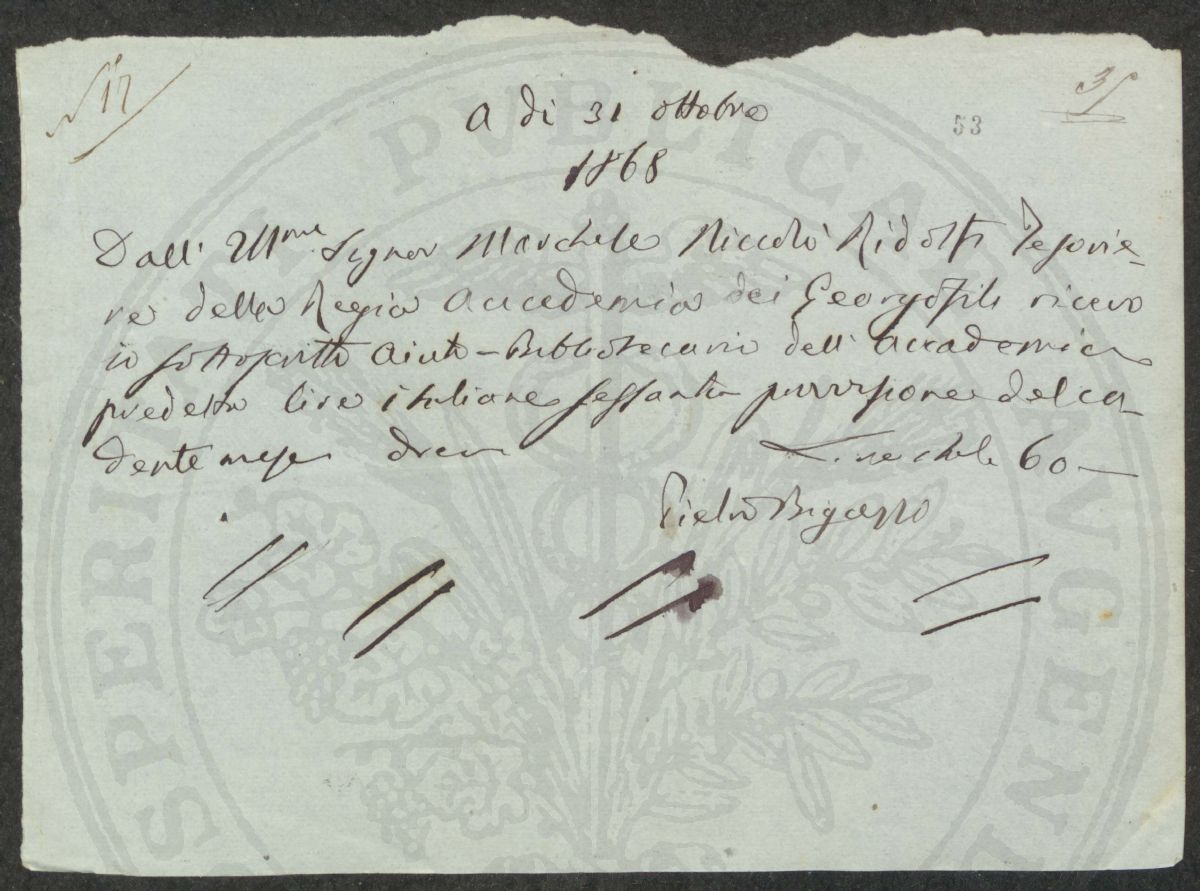 N 17
3/
53
a di 31 ottobre
1868
Dall' Ill.me Signor Marchese Niccolò Ridolfi Tesorie-
re della Regia Accademia dei Georgofili ricevo
io sottoscritto Aiuto-Bibliotecario dell' Accademia
predetta lire italiane sessanta provvisione del ca-
dente mese
Lire itale 60 —
Pietro Bigazzi